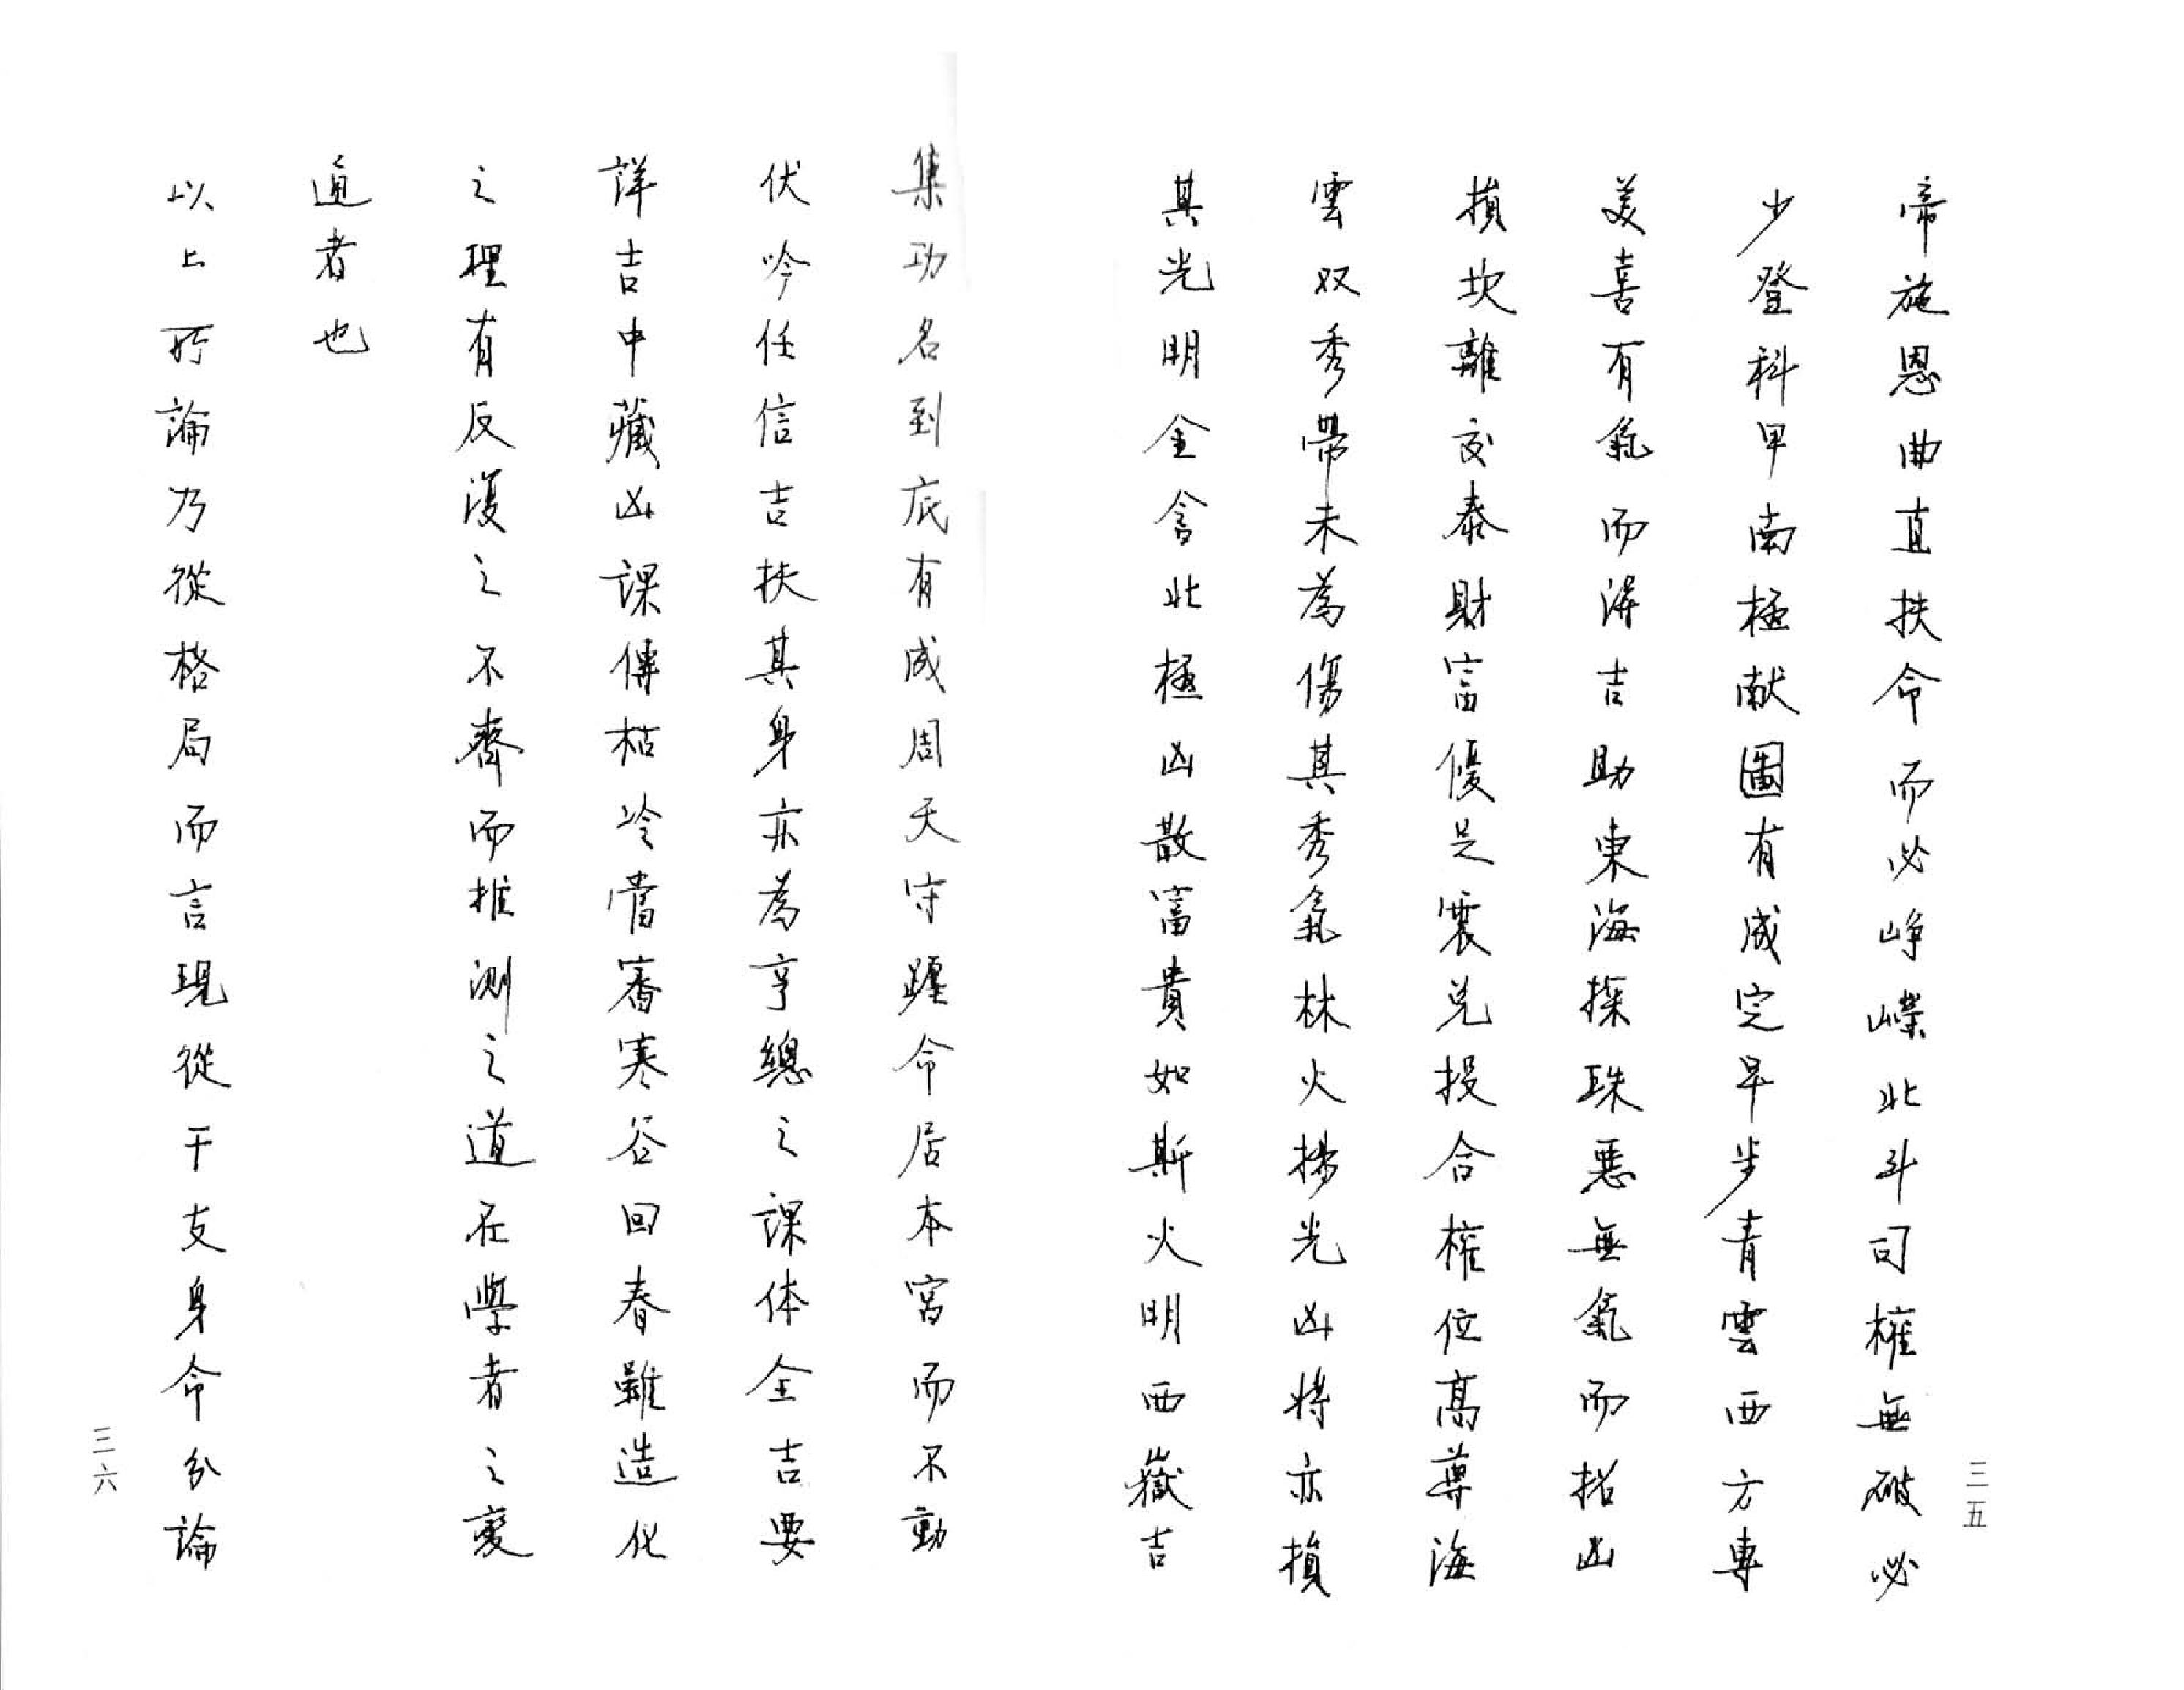 帝施恩曲直扶命而必峥嶸北斗司權無破必
少登科甲南極献圖有成完早步青雲西方專
美喜有氣而得吉助東海探珠惡無氣而招凶
損坎離交泰財富優足震兌投合權位高尊海
雲双秀帶未為傷其秀氣林火揚光凶將亦損
其光明金含北極凶散富貴如斯火明西嶽吉
三五
集功名到底有成周天守躔命居本宮而不動
伏吟任信吉扶其身亦為亨總之課体全吉要
詳吉中藏凶課傳枯冷當審寒谷回春雖造化
之理有反復之不齊而推測之道在學者之變
通者也
以上所論乃從格局而言現從干支身命分論
三六